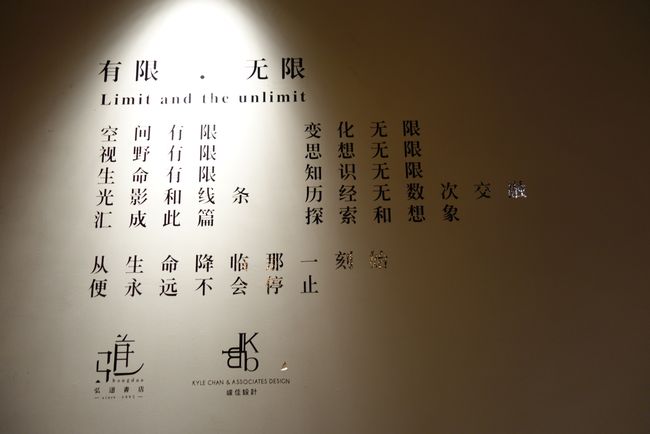 有限 . 无限
Limit and the unlimit
空间有限
视野有限
生命有限
光影和线条
汇成此篇
变化无限
思想无限
知识无限
历经无数次交融
探索和想象
从生命降临那一刻始
便永远不会停止
hongdao
弘道書店
KYLE CHAN & ASSOCIATES DESIGN